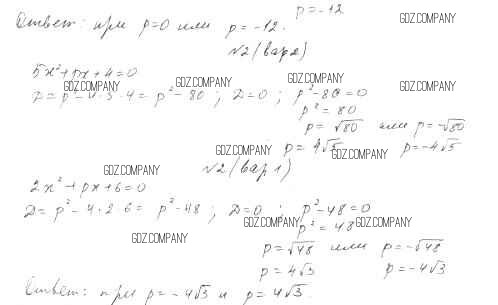 p=-12
Ответ: при p=0 или p=-12.
GDZ.COMPANY
№2 (вар 2)
5x²+px+4=0
GDZ.COMPANY GDZ.COMPANY GDZ.COMPANY GDZ.COMPANY
D=p²-4·5·4=p²-80; D=0; p²-80=0
p²=80
p=√80 или p=-√80
p=4√5 p=-4√5
GDZ.COMPANY GDZ.COMPANY
GDZ.COMPANY
№2 (вар 1)
2x²+px+6=0
D=p²-4·2·6=p²-48; D=0; p²-48=0
GDZ.COMPANY GDZ.COMPANY
p²=48
GDZ.COMPANY
p=√48 или p=-√48
p=4√3 p=-4√3
Ответ: при p=-4√3 и p=4√3.